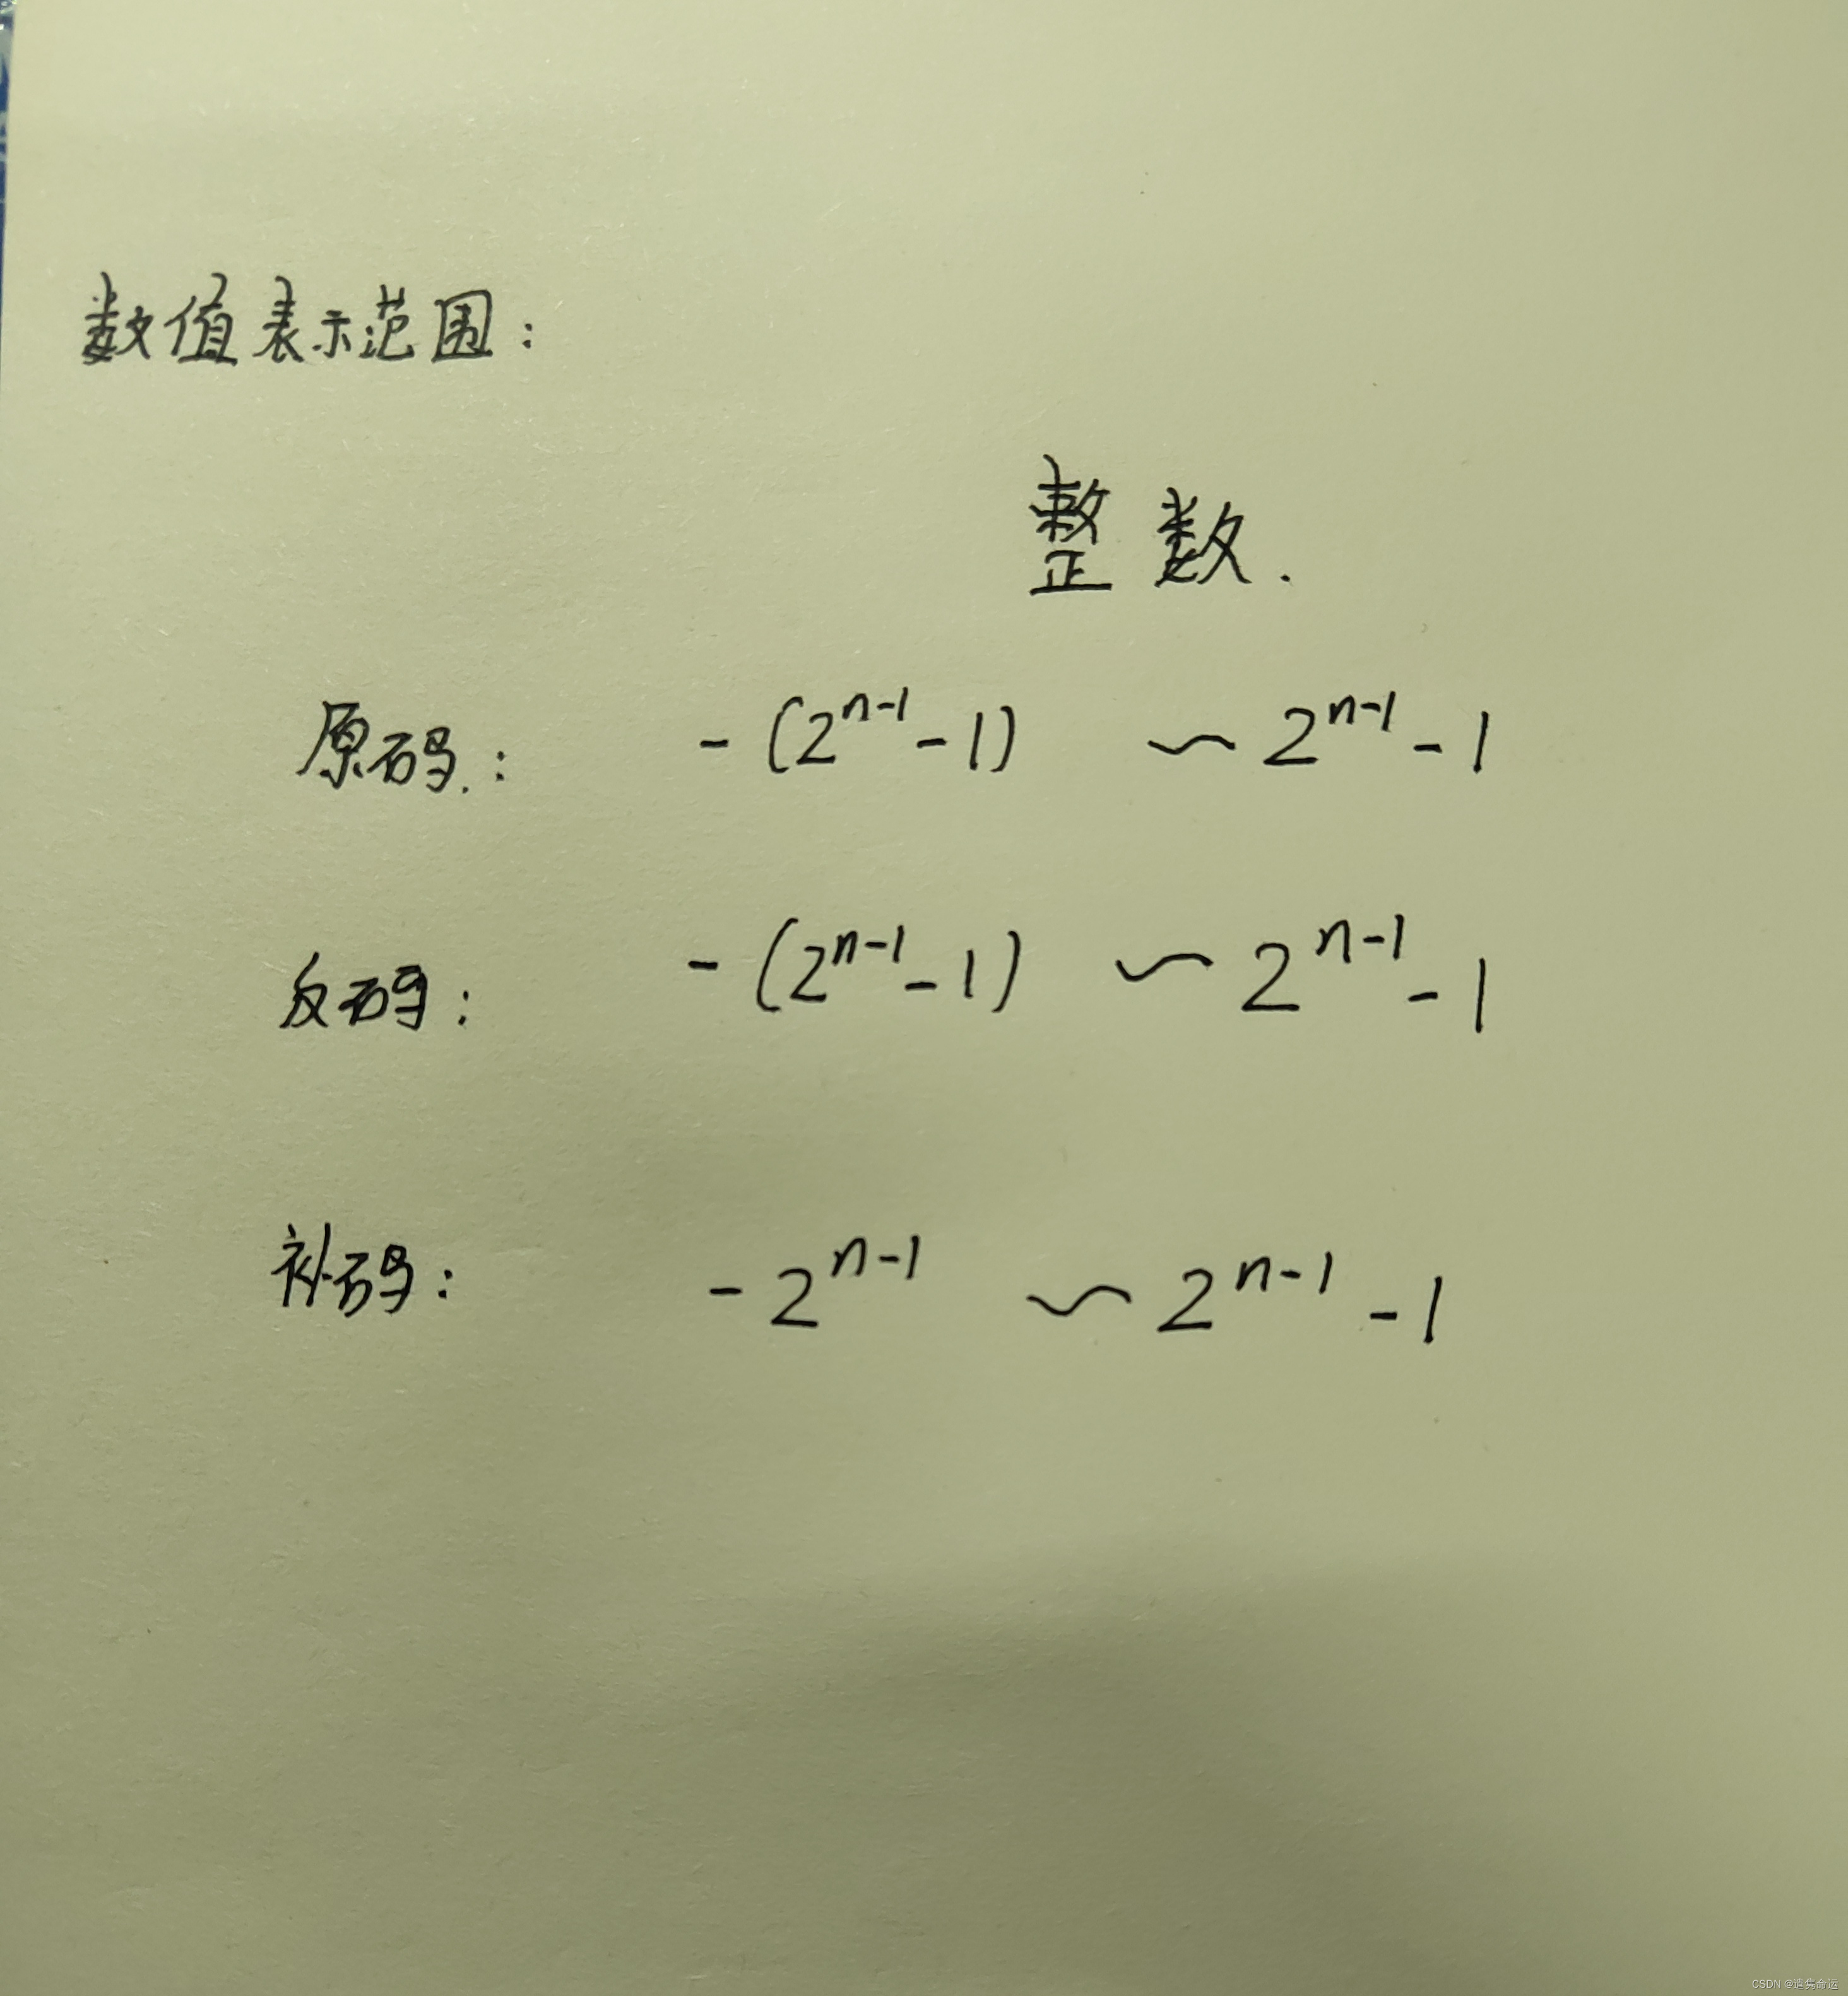 数值表示范围：
整数.
原码.： -(2^{n-1}-1) ~ 2^{n-1}-1
反码： -(2^{n-1}-1) ~ 2^{n-1}-1
补码： -2^{n-1} ~ 2^{n-1}-1
CSDN @遣隽命运